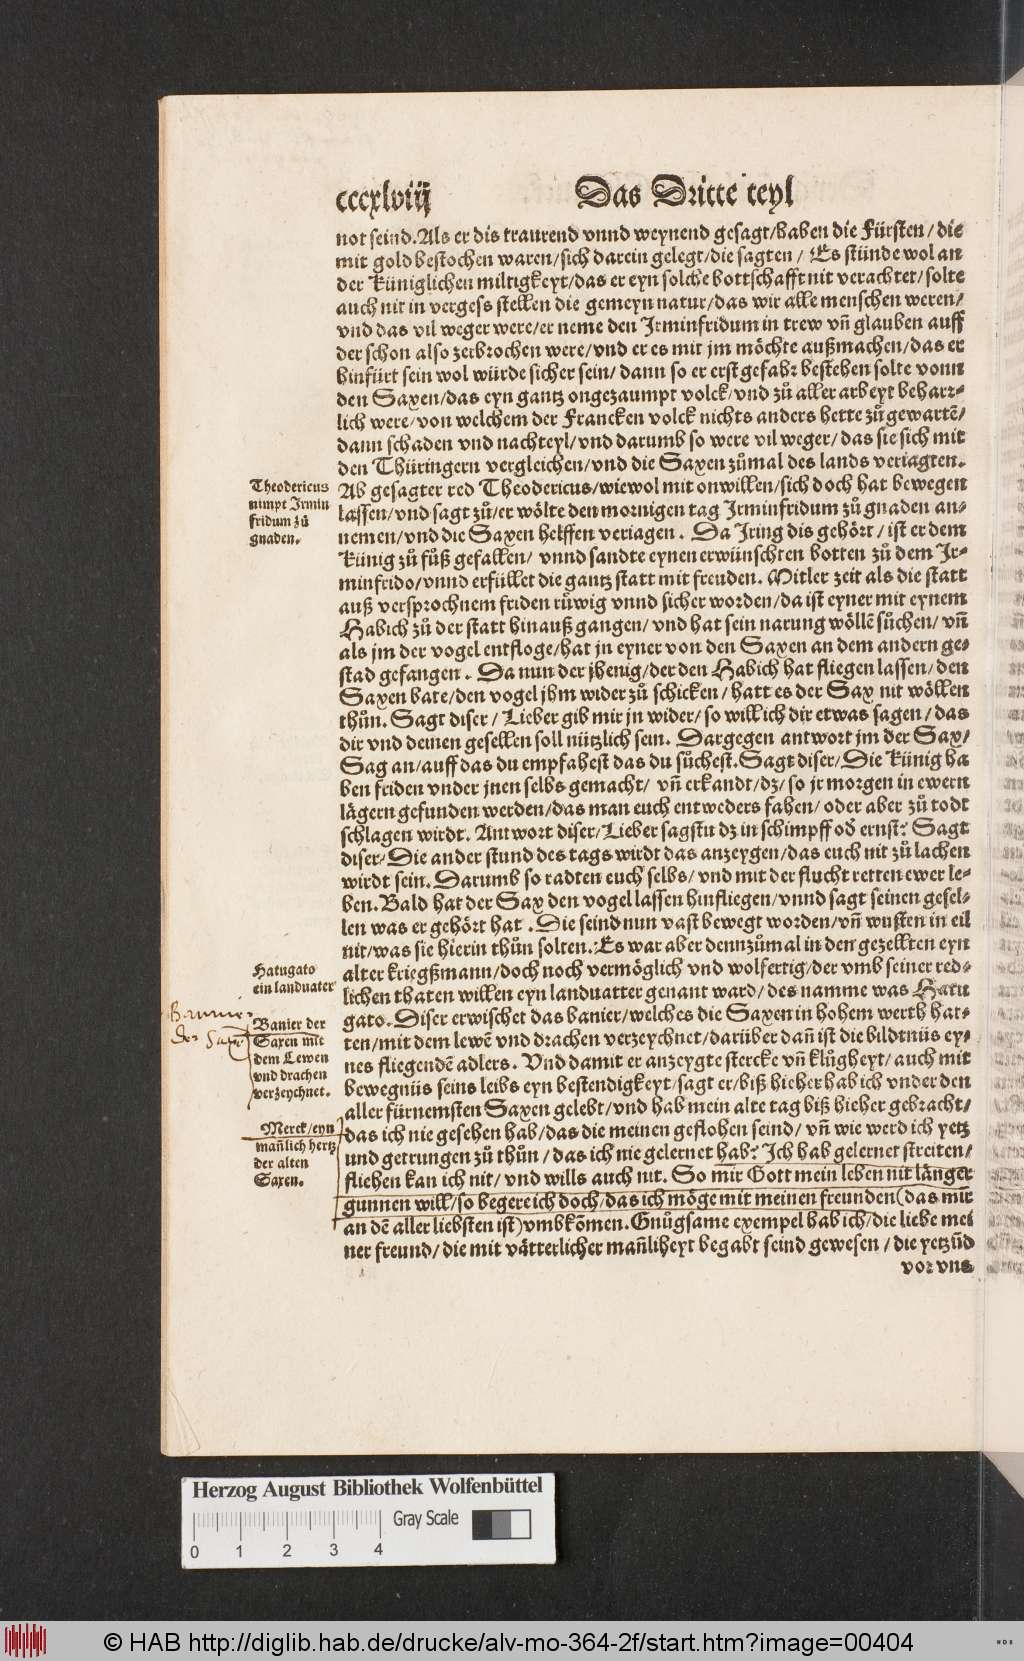 cccxlviij
Das Dritte teyl
not seind. Als er dis traurend vnnd weynend gesagt/haben die Fürsten/ die
mit gold bestochen waren/sich darein gelegt/die sagten/ Es stünde wol an
der Küniglichen miltigkeyt/das er eyn solche bottschafft nit verachtet/solte
auch nit in vergess stellen die gemeyn natur/das wir alle menschen weren/
vnd das vil weger were/er neme den Irminfridum in trew vñ glauben auff
der schon also zerbrochen were/vnd er es mit jm möchte außmachen/das er
hinfürt sein wol würde sicher sein/ dann so er erst gefahr bestehen solte vonn
den Saxen/das eyn gantz ongezaumpt volck/vnd zů aller arbeyt beharr⸗
lich were/von welchem der Francken volck nichts anders hette zů gewartē/
dann schaden vnd nachteyl/vnd darumb so were vil weger/das sie sich mit
den Thüringern vergleichen/vnd die Saxen zůmal des lands veriagten.
Theodericus
nimpt Irmin
fridum zů
gnaden.
Ab gesagter red Theodericus/wiewol mit onwillen/sich doch hat bewegen
lassen/vnd sagt zů/er wölte den mornigen tag Irminfridum zů gnaden an⸗
nemen/vnd die Saxen helffen veriagen. Da Iring dis gehört/ist er dem
Künig zů fůß gefallen/ vnnd sandte eynen erwünschten botten zů dem Ir⸗
minfrido/vnnd erfüllet die gantz statt mit freuden. Mitler zeit als die statt
auß versprochnem friden růwig vnnd sicher worden/da ist eyner mit eynem
Habich zů der statt hinauß gangen/ vnd hat sein narung wöllē sůchen/vñ
als jm der vogel entfloge/hat jn eyner von den Saxen an dem andern ge⸗
stad gefangen. Da nun der jhenig/der den Habich hat fliegen lassen/den
Saxen bate/den vogel jhm wider zů schicken/ hatt es der Sax nit wöllen
thůn. Sagt diser/ Lieber gib mir jn wider/so will ich dir etwas sagen/das
dir vnd deinen gesellen soll nützlich sein. Dargegen antwort jm der Sax/
Sag an/auff das du empfahest das du sůchest. Sagt diser/Die Künig ha
ben friden vnder jnen selbs gemacht/ vñ erkandt/dz/so jr morgen in ewern
lägern gefunden werden/das man euch entweders fahen/oder aber zů todt
schlagen wirdt. Antwort diser/Lieber sagstu dz in schimpff od̄ ernst? Sagt
diser/Die ander stund des tags wirdt das anzeygen/das euch nit zů lachen
wirdt sein. Darumb so radten euch selbs/vnd mit der flucht retten ewer le⸗
ben. Bald hat der Sax den vogel lassen hinfliegen/vnnd sagt seinen gesel⸗
len was er gehört hat. Die seind nun vast bewegt worden/vñ wusten in eil
nit/was sie hierin thůn solten. Es war aber dennzůmal in den gezellten eyn
Hatugato
ein landuater
alter kriegßmann/doch noch vermöglich vnd wolfertig/der vmb seiner red⸗
lichen thaten willen eyn landuatter genant ward/des namme was Hatu
gato. Diser erwischet das banier/welches die Saxen in hohem werth hat⸗
Banier der
Saxen mit
dem Lewen
vnd drachen
verzeychnet.
ten/mit dem lewē vnd drachen verzeychnet/darüber dañ ist die bildtnüs ey⸗
nes fliegendē adlers. Vnd damit er anzeygte stercke vñ klůgheyt/auch mit
bewegnüs seins leibs eyn bestendigkeyt/sagt er/biß hieher hab ich vnder den
aller fürnemsten Saxen gelebt/vnd hab mein alte tag biß hieher gebracht/
Merck/eyn
mañlich hertz
der alten
Saxen.
das ich nie gesehen hab/das die meinen geflohen seind/ vñ wie werd ich yetz
vnd getrungen zů thůn/das ich nie gelernet hab? Ich hab gelernet streiten/
fliehen kan ich nit/vnd wills auch nit. So mir Gott mein leben nit länger
gunnen will/so begere ich doch/das ich möge mit meinen freunden(das mir
an dē aller liebsten ist)vmbkōmen. Gnůgsame exempel hab ich/die liebe mei
ner freund/die mit vätterlicher mañliheyt begabt seind gewesen/die yetzūd
vor vns
Herzog August Bibliothek Wolfenbüttel
Gray Scale
0 1 2 3 4
© HAB http://diglib.hab.de/drucke/alv-mo-364-2f/start.htm?image=00404